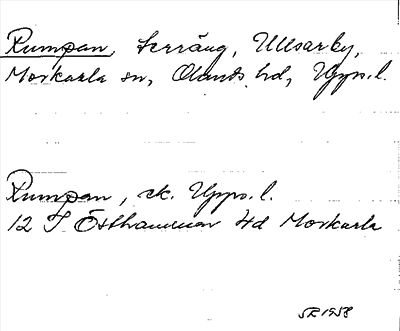 Rumpan, terräng, Ullsarby,
Morkarla sn, Olands hd, Upps. l.
Rumpan, ek. Upps. l.
12 I Östhammar 4d Morkarla
SR 1958